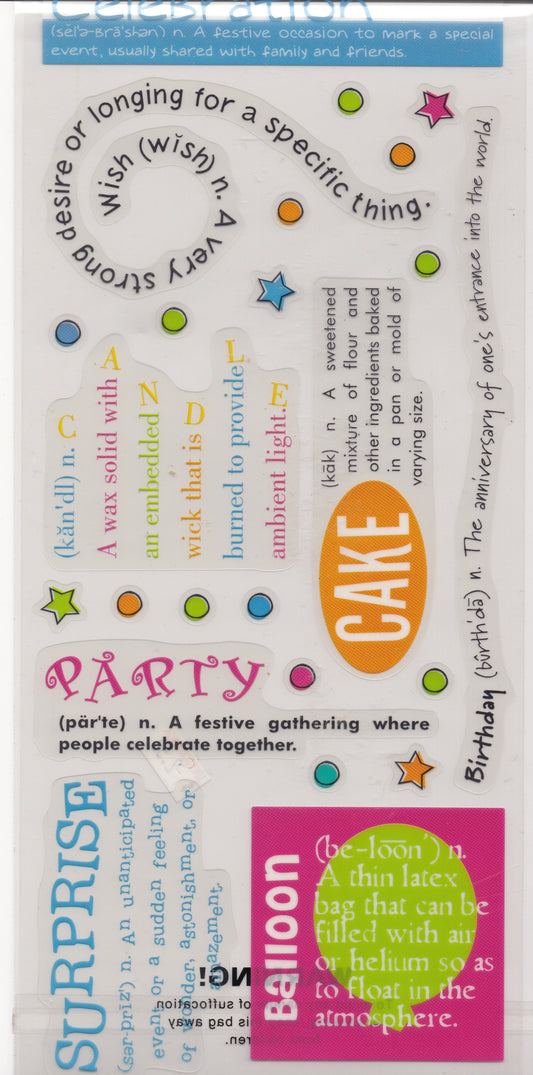 Celebration
(sĕl'ə-Brā'shən) n. A festive occasion to mark a special
event, usually shared with family and friends.
Wish (wĭsh) n. A very strong desire or longing for a specific thing.
CANDLE
(kăn'dl) n.
A wax solid with
an embedded
wick that is
burned to provide
ambient light.
CAKE
(kāk) n. A sweetened
mixture of flour and
other ingredients baked
in a pan or mold of
varying size.
Birthday (bûrth'dā) n. The anniversary of one's entrance into the world.
PARTY
(pär'te) n. A festive gathering where
people celebrate together.
SURPRISE
(sər-prīz') n. An unanticipated
event or a sudden feeling
of wonder, astonishment, or
amazement.
Balloon
(be-lōōn') n.
A thin latex
bag that can be
filled with air
or helium so as
to float in the
atmosphere.
WARNING!
of suffocation
this bag away